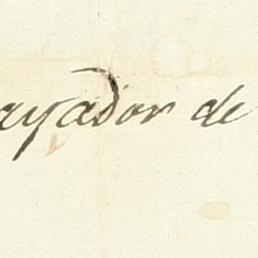 ayador de